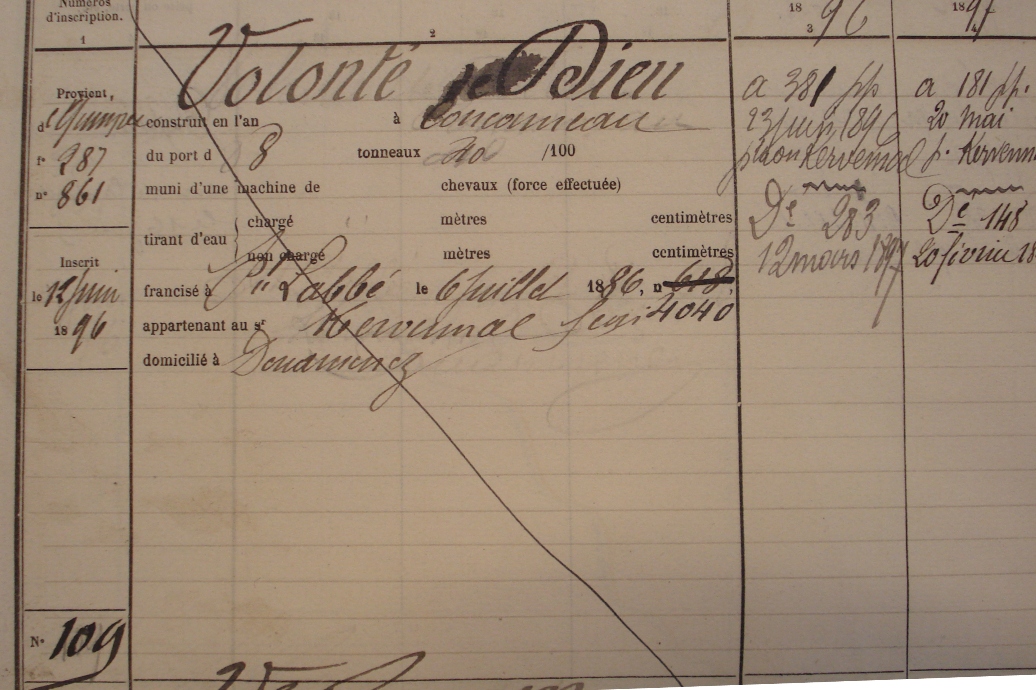 Numéros
d'inscription.
1
2
18 96
3
1897
4
Volonté de Dieu
Provient,
de Quimper
construit en l'an à Concarneau
f° 287
du port d 8 tonneaux /100
n° 861
muni d'une machine de chevaux (force effectuée)
tirant d'eau
chargé mètres centimètres
non chargé mètres centimètres
Inscrit
le 12 Juin
1896
francisé à Pt l'abbé le 6 juillet 1886, n° 618,
4040
appartenant au sr
domicilié à Douarnenez
a 381
23 juin 1896
De 283
12 mars 1897
a 181
20 Mai
p. Kervenn
De 148
20 février 18
N° 109